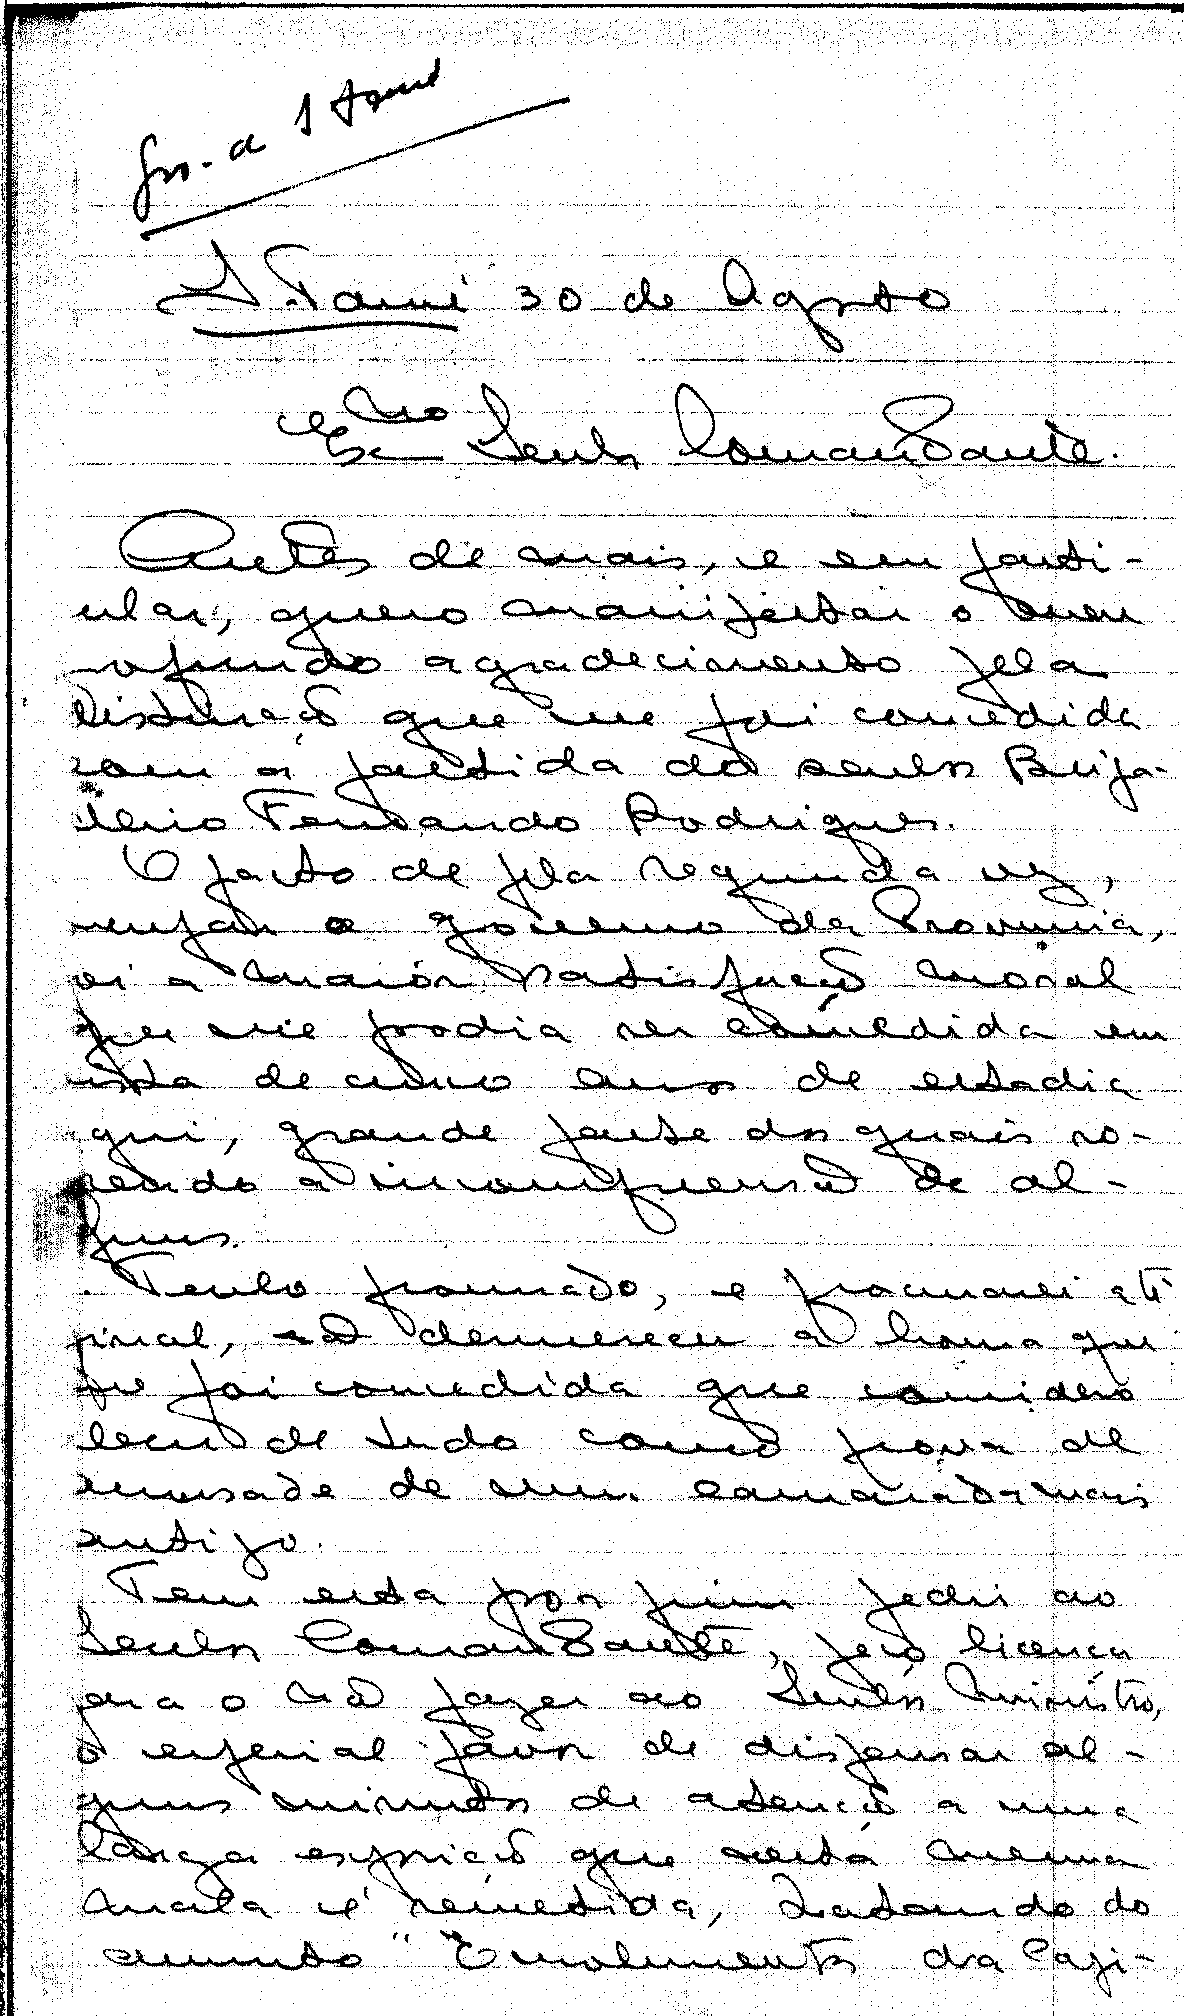 S. Tomé 30 de Agosto
Exmo Senhor Comandante.
Antes de mais, e em parti-
cular, quero manifestar o meu
profundo agradecimento pela
distinção que me foi concedida
com a partida do senhor Briga-
deiro Fernando Rodrigues.
O facto de pela segunda vez,
ocupar o governo da Provincia,
foi a maior satisfação moral
que me podia ser concedida em
vista de cinco anos de estadia
aqui, grande parte dos quais so-
frendo a incompreensão de al-
guns.
Tenho procurado, e procurarei até
final, não desmerecer a honra que
me foi concedida que considero
de tudo como prova de
amisade de um camarada mais
antigo.
Tem esta por fim pedir ao
Senhor Comandante, peço licença
para o não fazer ao Senhor Ministro,
o especial favor de dispensar al-
guns minutos de atenção a uma
larga exposição que nesta mesma
mala é remetida, tratando do
assunto "Emolumentos da Capi-